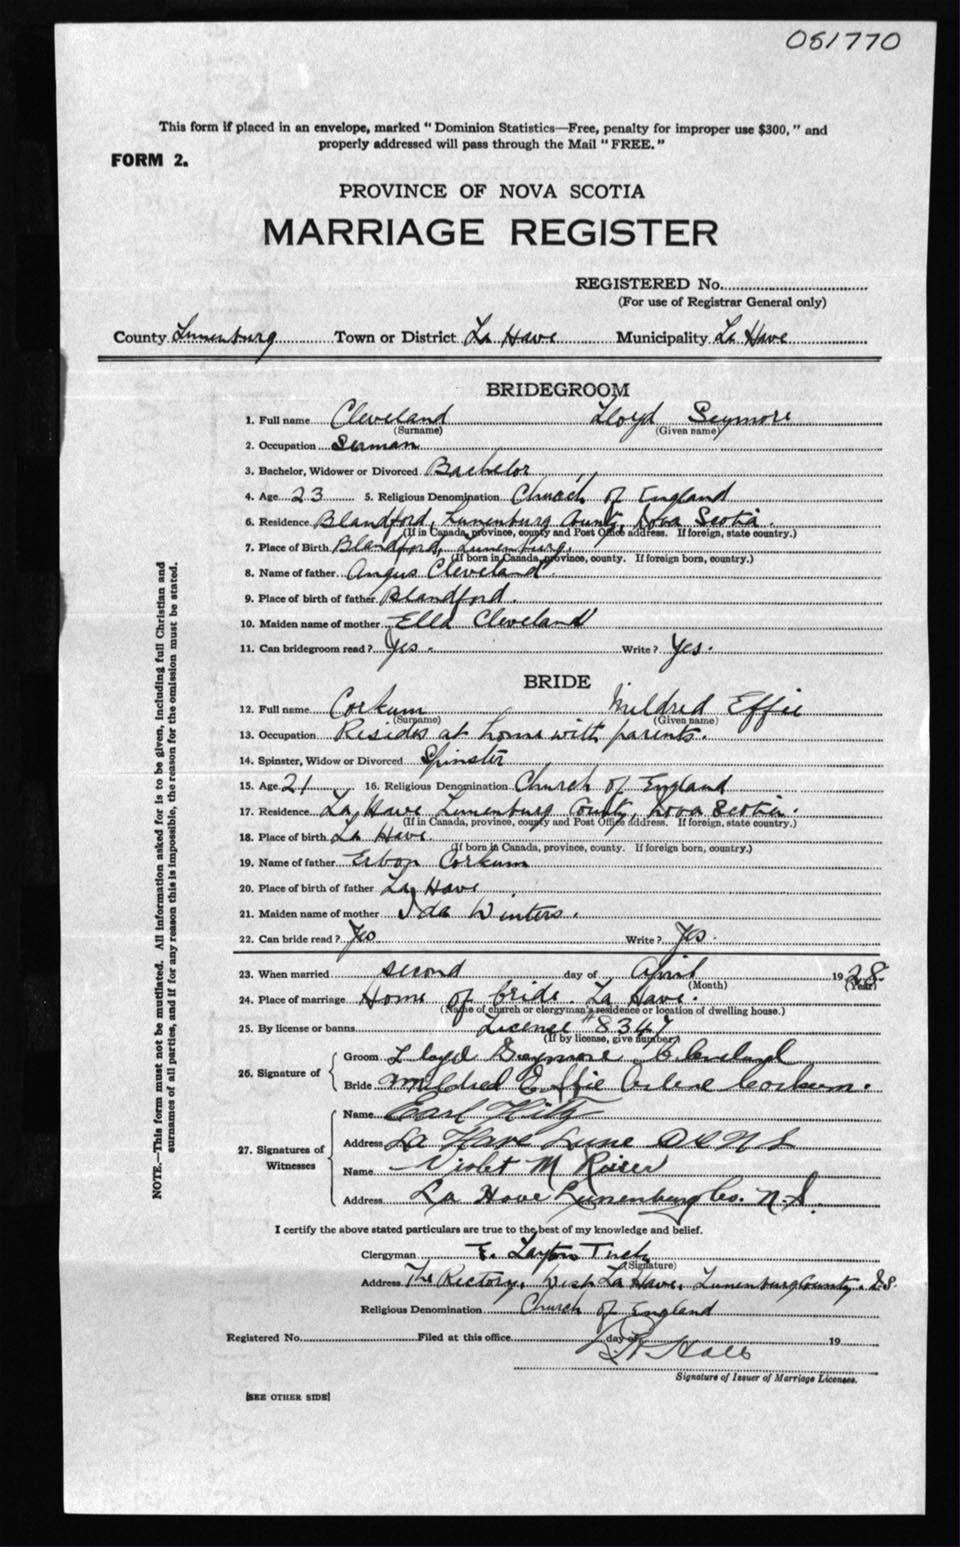 081770
This form if placed in an envelope, marked "Dominion Statistics—Free, penalty for improper use $300," and
properly addressed will pass through the Mail "FREE."
FORM 2.
PROVINCE OF NOVA SCOTIA
MARRIAGE REGISTER
REGISTERED No.
(For use of Registrar General only)
County Lunenburg Town or District La Have Municipality La Have
BRIDEGROOM
1. Full name Cleveland Lloyd Seymore
(Surname) (Given name)
2. Occupation Seaman
3. Bachelor, Widower or Divorced Bachelor
4. Age 23 5. Religious Denomination Church of England
6. Residence Blandford, Lunenburg County, Nova Scotia.
(If in Canada, province, county and Post Office address. If foreign, state country.)
7. Place of Birth Blandford, Lunenburg.
(If born in Canada, province, county. If foreign born, country.)
8. Name of father Angus Cleveland.
9. Place of birth of father Blandford.
10. Maiden name of mother Ella Cleveland
11. Can bridegroom read? Yes. Write? Yes.
BRIDE
12. Full name Corkum Mildred Effie
(Surname) (Given name)
13. Occupation Resides at home with parents.
14. Spinster, Widow or Divorced Spinster
15. Age 21 16. Religious Denomination Church of England
17. Residence La Have Lunenburg County, Nova Scotia.
(If in Canada, province, county and Post Office address. If foreign, state country.)
18. Place of birth La Have.
(If born in Canada, province, county. If foreign born, country.)
19. Name of father Corkum
20. Place of birth of father La Have
21. Maiden name of mother Ida Winters.
22. Can bride read? Yes Write? Yes.
23. When married second day of April 1928
(Month) (Year)
24. Place of marriage Home of bride. La Have.
(Name of church or clergyman's residence or location of dwelling house.)
25. By license or banns License #8347
(If by license, give number)
26. Signature of
Groom Lloyd Seymore Cleveland
Bride Mildred Effie Arlene Corkum.
27. Signatures of Witnesses
Name Earl
Address La Have Lune N S
Name Violet M
Address La Have Lunenburg Co. N.S.
I certify the above stated particulars are true to the best of my knowledge and belief.
Clergyman T. Layton
(Signature)
Address The Rectory, West La Have, Lunenburg County. N.S.
Religious Denomination Church of England
Registered No. Filed at this office day of 19
Signature of Issuer of Marriage Licenses.
[SEE OTHER SIDE]
NOTE.—This form must not be mutilated. All information asked for is to be given, including full Christian and
surnames of all parties, and if for any reason this is impossible, the reason for the omission must be stated.